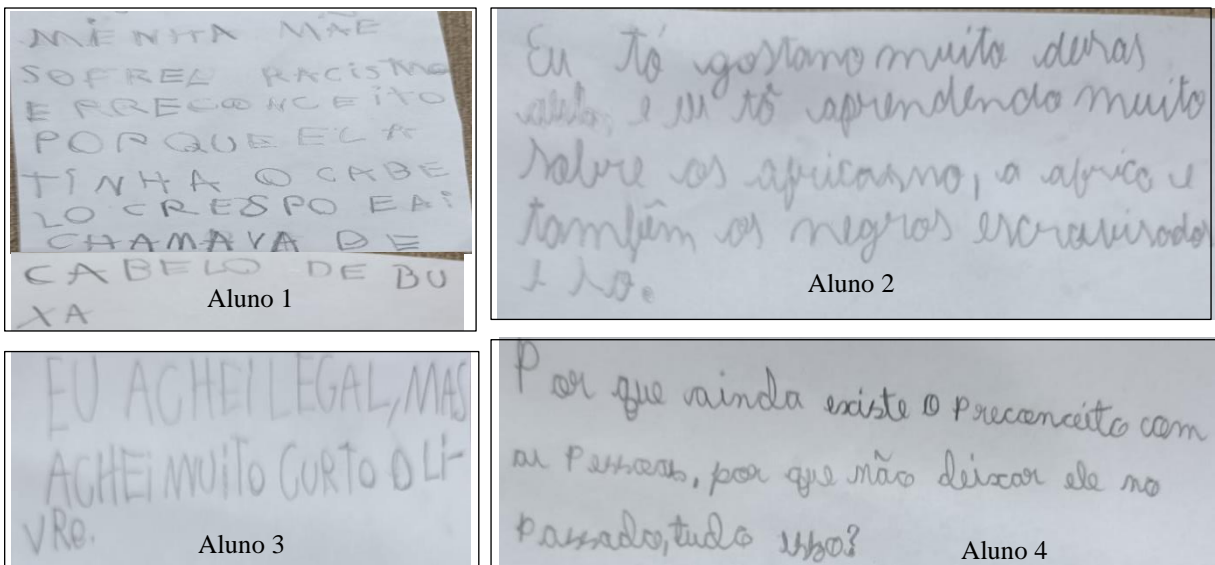 MINHA MÃE
SOFREU RACISMO
E PRECONCEITO
PORQUE ELA
TINHA O CABE
LO CRESPO E AI
CHAMAVA DE
CABELO DE BU
XA
Aluno 1
Eu tô gostano muito duras
e eu tô aprendendo muito
sobre os africasno, a africa e
também os negros escravisados
e so.
Aluno 2
EU ACHEI LEGAL, MAS
ACHEI MUITO CURTO O LI-
VRO.
Aluno 3
Por que ainda existe o Preconceito com
as Pessoas, por que não deixar ele no
Passado, tudo isso?
Aluno 4